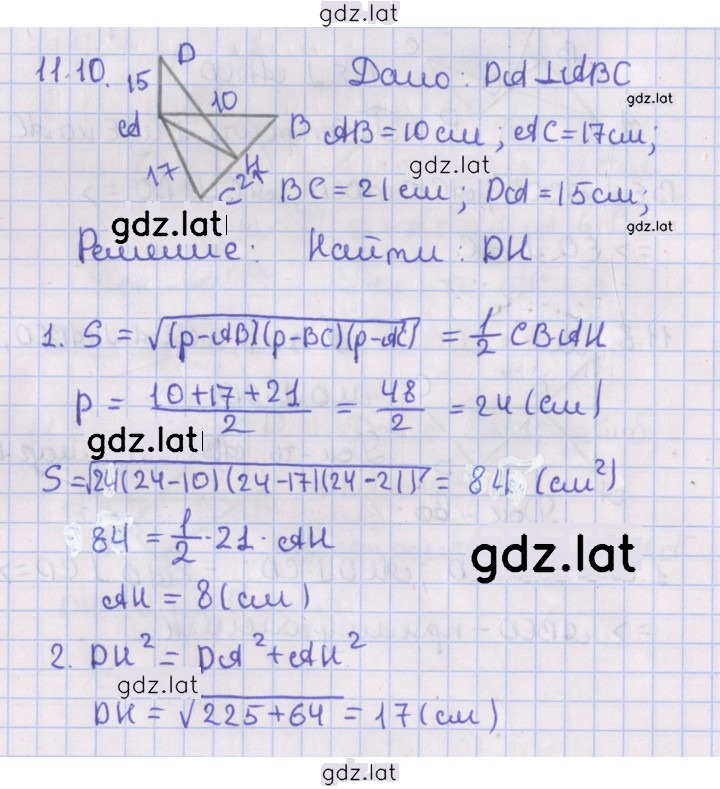 gdz.lat
11.10.
D
15
10
A
B
17
H
C
21
Дано: DA⊥ABC
gdz.lat
AB=10см; AC=17см;
gdz.lat
BC=21см; DA=15см;
gdz.lat
gdz.lat
Решение: Найти: DH
1. S = √(p-AB)(p-BC)(p-AC) = 1/2 CB·AH
p = 10+17+21/2 = 48/2 = 24(см)
gdz.lat
S=√24(24-10)(24-17)(24-21) = 84 (см²)
84 = 1/2·21·AH
gdz.lat
AH = 8(см)
2. DH² = DA²+AH²
gdz.lat
DH = √225+64 = 17(см)
gdz.lat